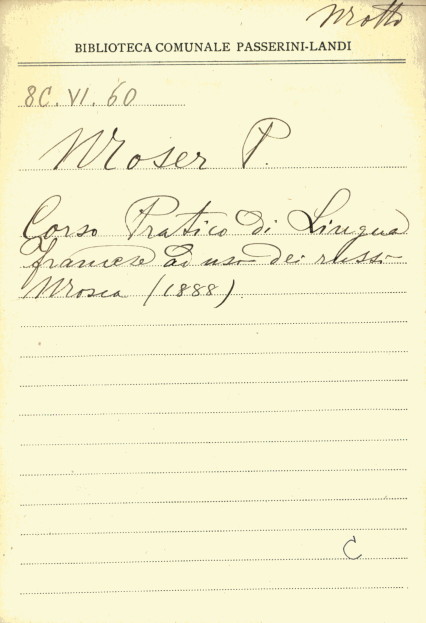 Motto
BIBLIOTECA COMUNALE PASSERINI-LANDI
8C.VI.60
Moser P.
Corso Pratico di Lingua
francese ad uso dei russi
Mosca (1888)
C